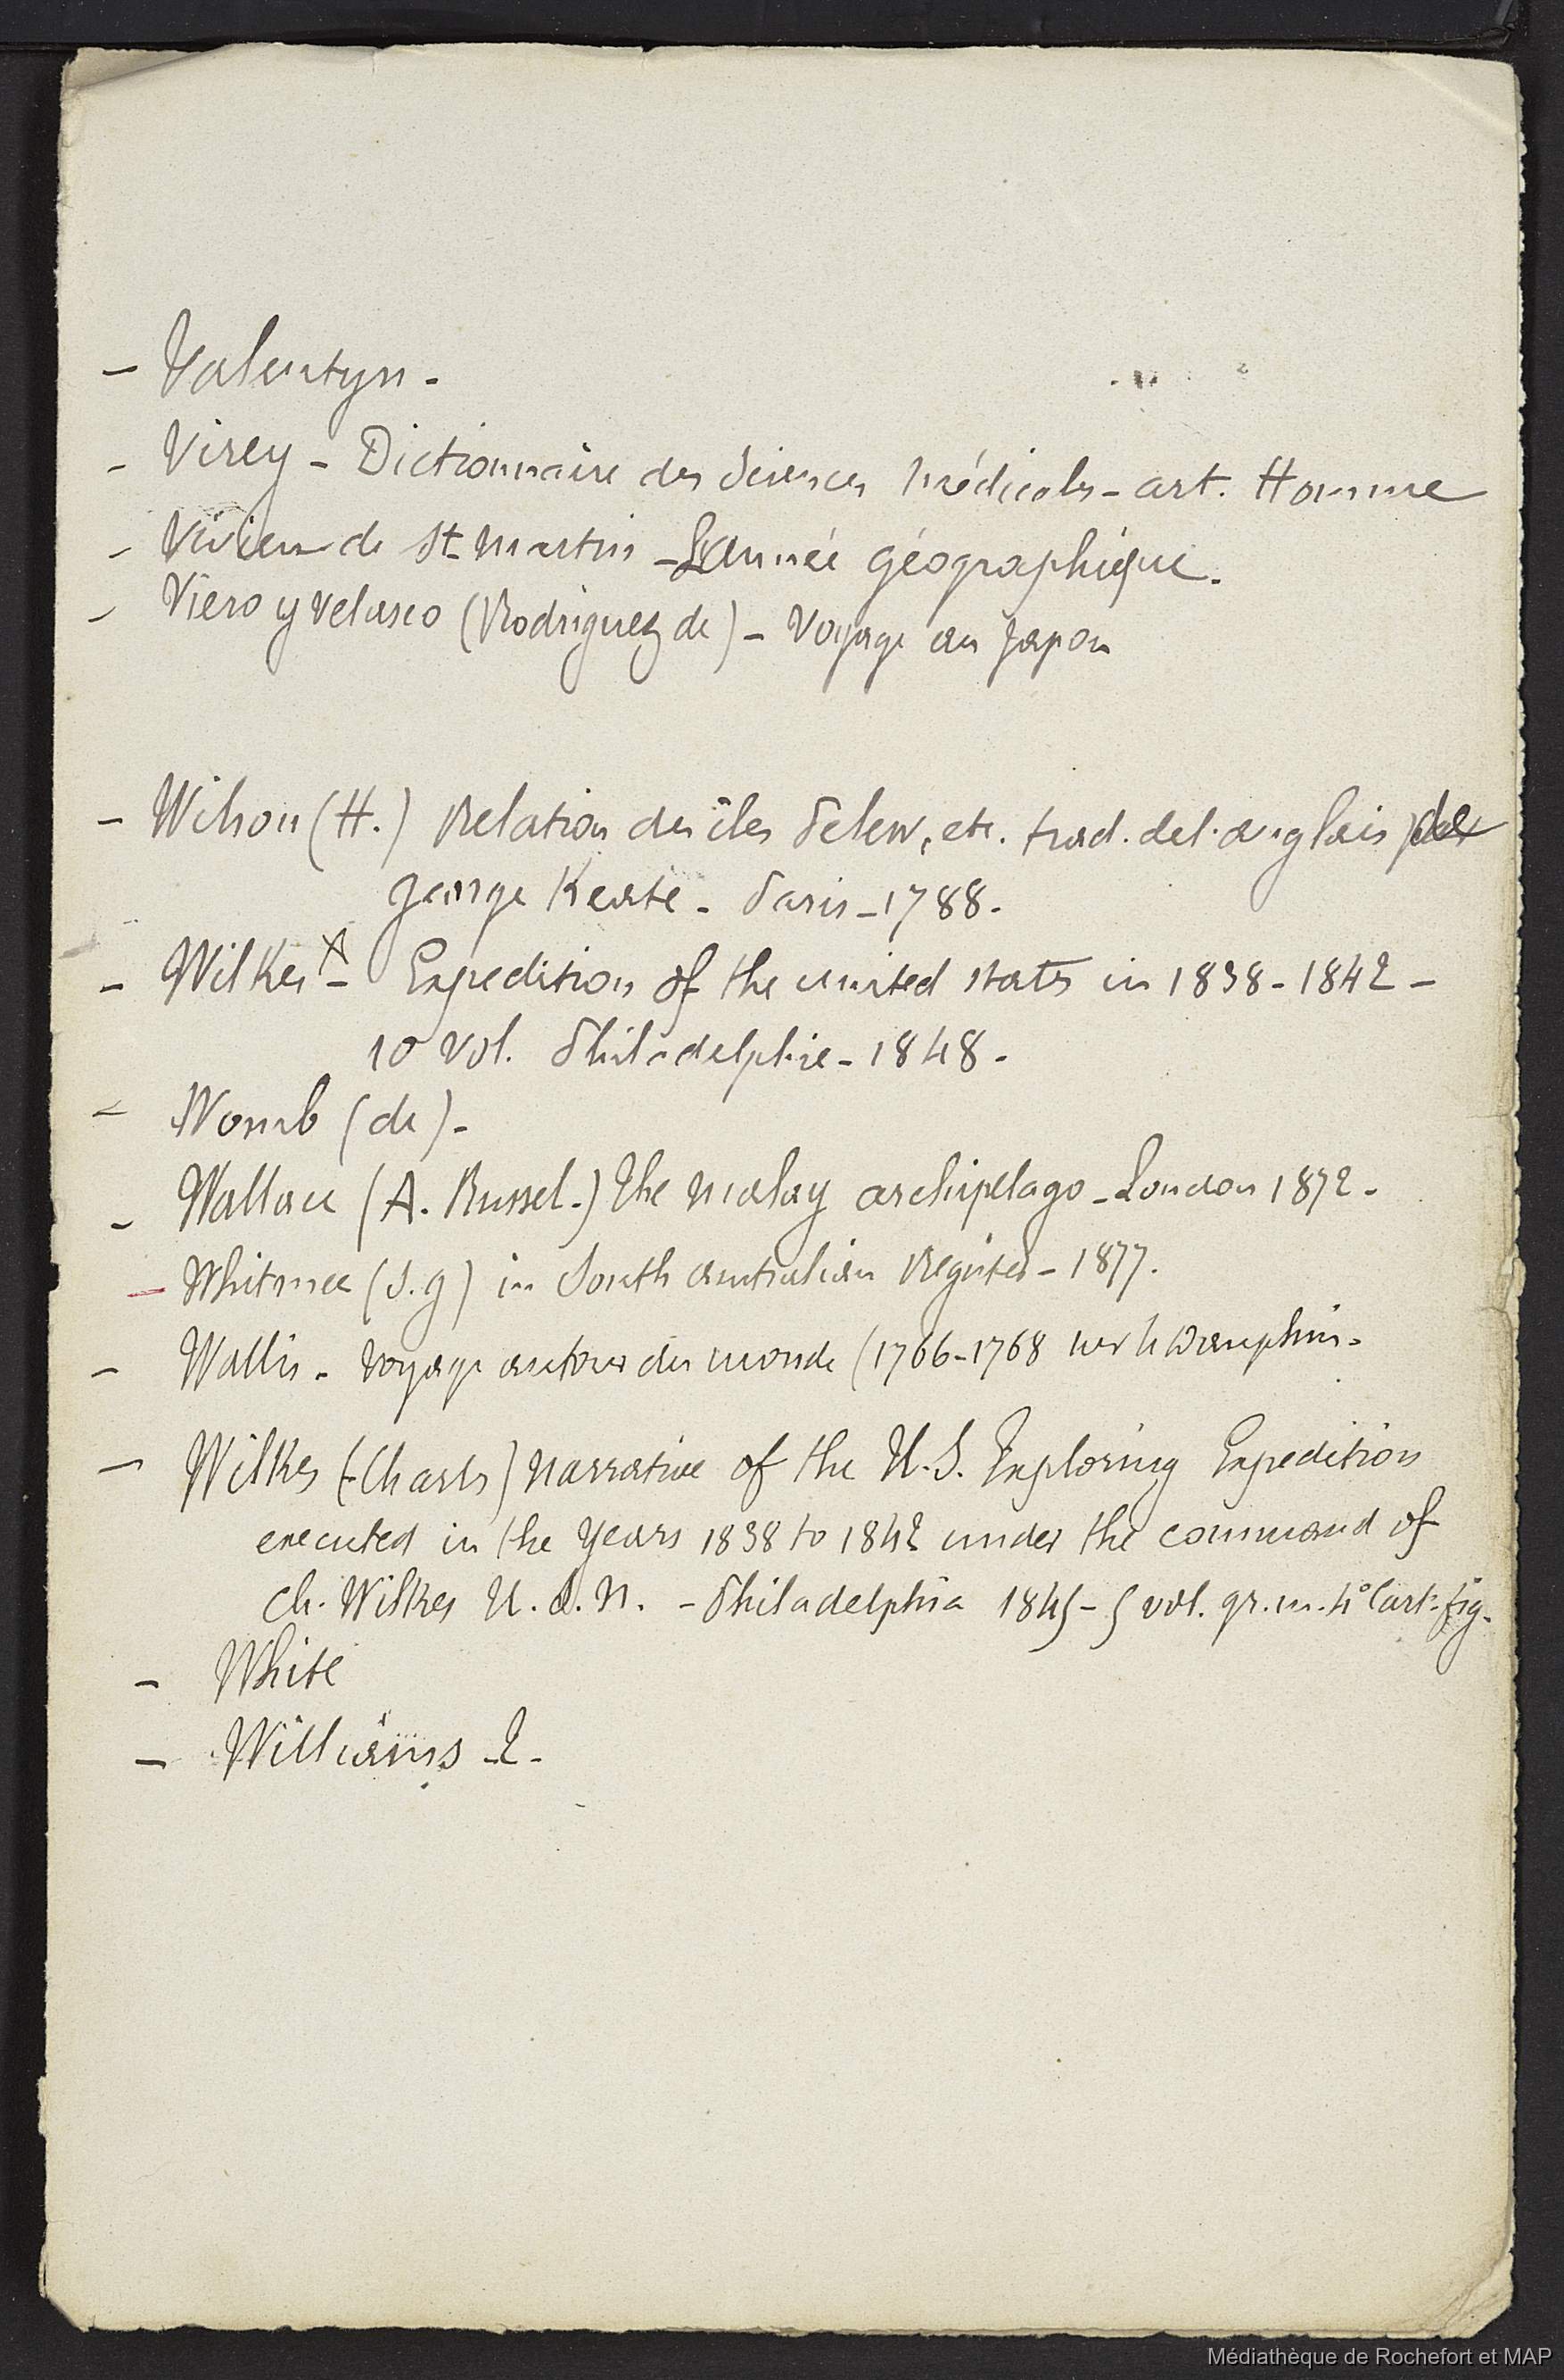 - Valentyn -
- Virey - Dictionnaire des Sciences Médicales - art. Homme
- Vivien de St Martin - L'année géographique.
- Viero y Velasco (Rodriguez de) - Voyage au Japon
- Wilson (H.) Relation des îles Pelew, etc. trad. de l'anglais de
George Keate - Paris - 1788.
- Wilkes - Expedition of the united states in 1838 - 1842 -
10 vol. Philadelphie - 1848.
- Womb (de) -
- Wallace (A. Russel.) The malay archipelago - London 1872.
- Whitmee (S. g) in South australian Register - 1877.
- Wallis - Voyage autour du monde (1766-1768 sur le Dauphin.
- Wilkes (Charles) narrative of the U.S. Exploring Expedition
executed in the years 1838 to 1842 under the command of
Ch. Wilkes U.S.N. - Philadelphia 1845 - 5 vol. gr. in-4° Cart. fig.
- White
- Williams -
Médiathèque de Rochefort et MAP